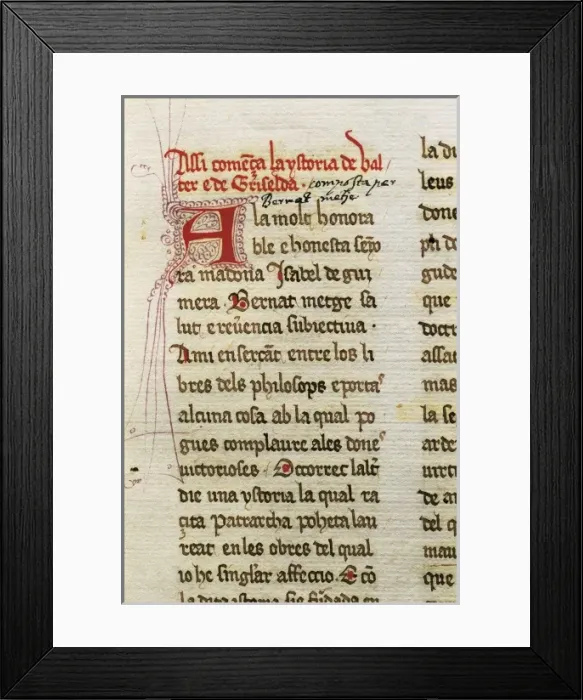 Assi comẽça la ystoria de val
ter e de Griselda · composta per
Bernat metje
A la molt honora
ble e honesta senyo
ra madona Isabel de gui
mera · Bernat metge sa
lut e reuerencia subiectiua ·
A mi en sercãt entre los li
bres dels philosops e poetas
alcuna cosa ab la qual po
gues complaure a les dones
uirtuoses · Occorrec laltr
die una ystoria la qual re
çita Patrarcha poheta lau
reat en les obres del qual
io he singlar affeccio · E cõ
la dita istoria sie fũdada en
la di
leus
done
ph d
gude
que
doctr
assa
mas
la se
arde
uirtu
de a
del q
mau
que